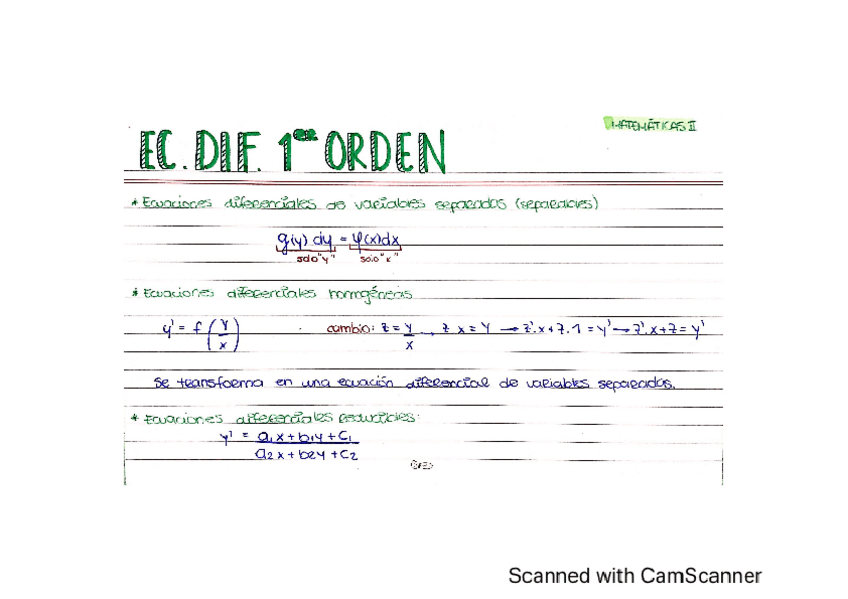 MATEMÁTICAS II
EC. DIF. 1er ORDEN
* Ecuaciones diferenciales de variables separadas (separables)
g(y) dy = φ(x)dx
solo "y" solo "x"
* Ecuaciones diferenciales homogéneas
y' = f(y/x) cambio: z = y/x , z x = y → z'.x + z.1 = y' → z'.x + z = y'
Se transforma en una ecuación diferencial de variables separadas.
* Ecuaciones diferenciales reducibles:
y' = a₁x + b₁y + c₁
a₂x + b₂y + c₂
Scanned with CamScanner